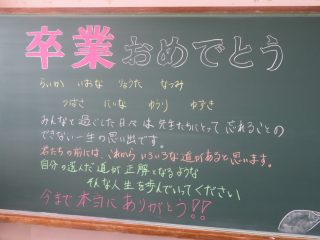 卒業おめでとう
らいか いおな りょうた なつみ
つばさ にいな ゆうり ゆずき
みんなと過ごした日々は先生たちにとって忘れることの
できない一生の思い出です。
君たちの前には、これからいろいろな道があると思います。
自分の選んだ道が正解となるような
そんな人生を歩んでいってください
今まで本当にありがとう!!